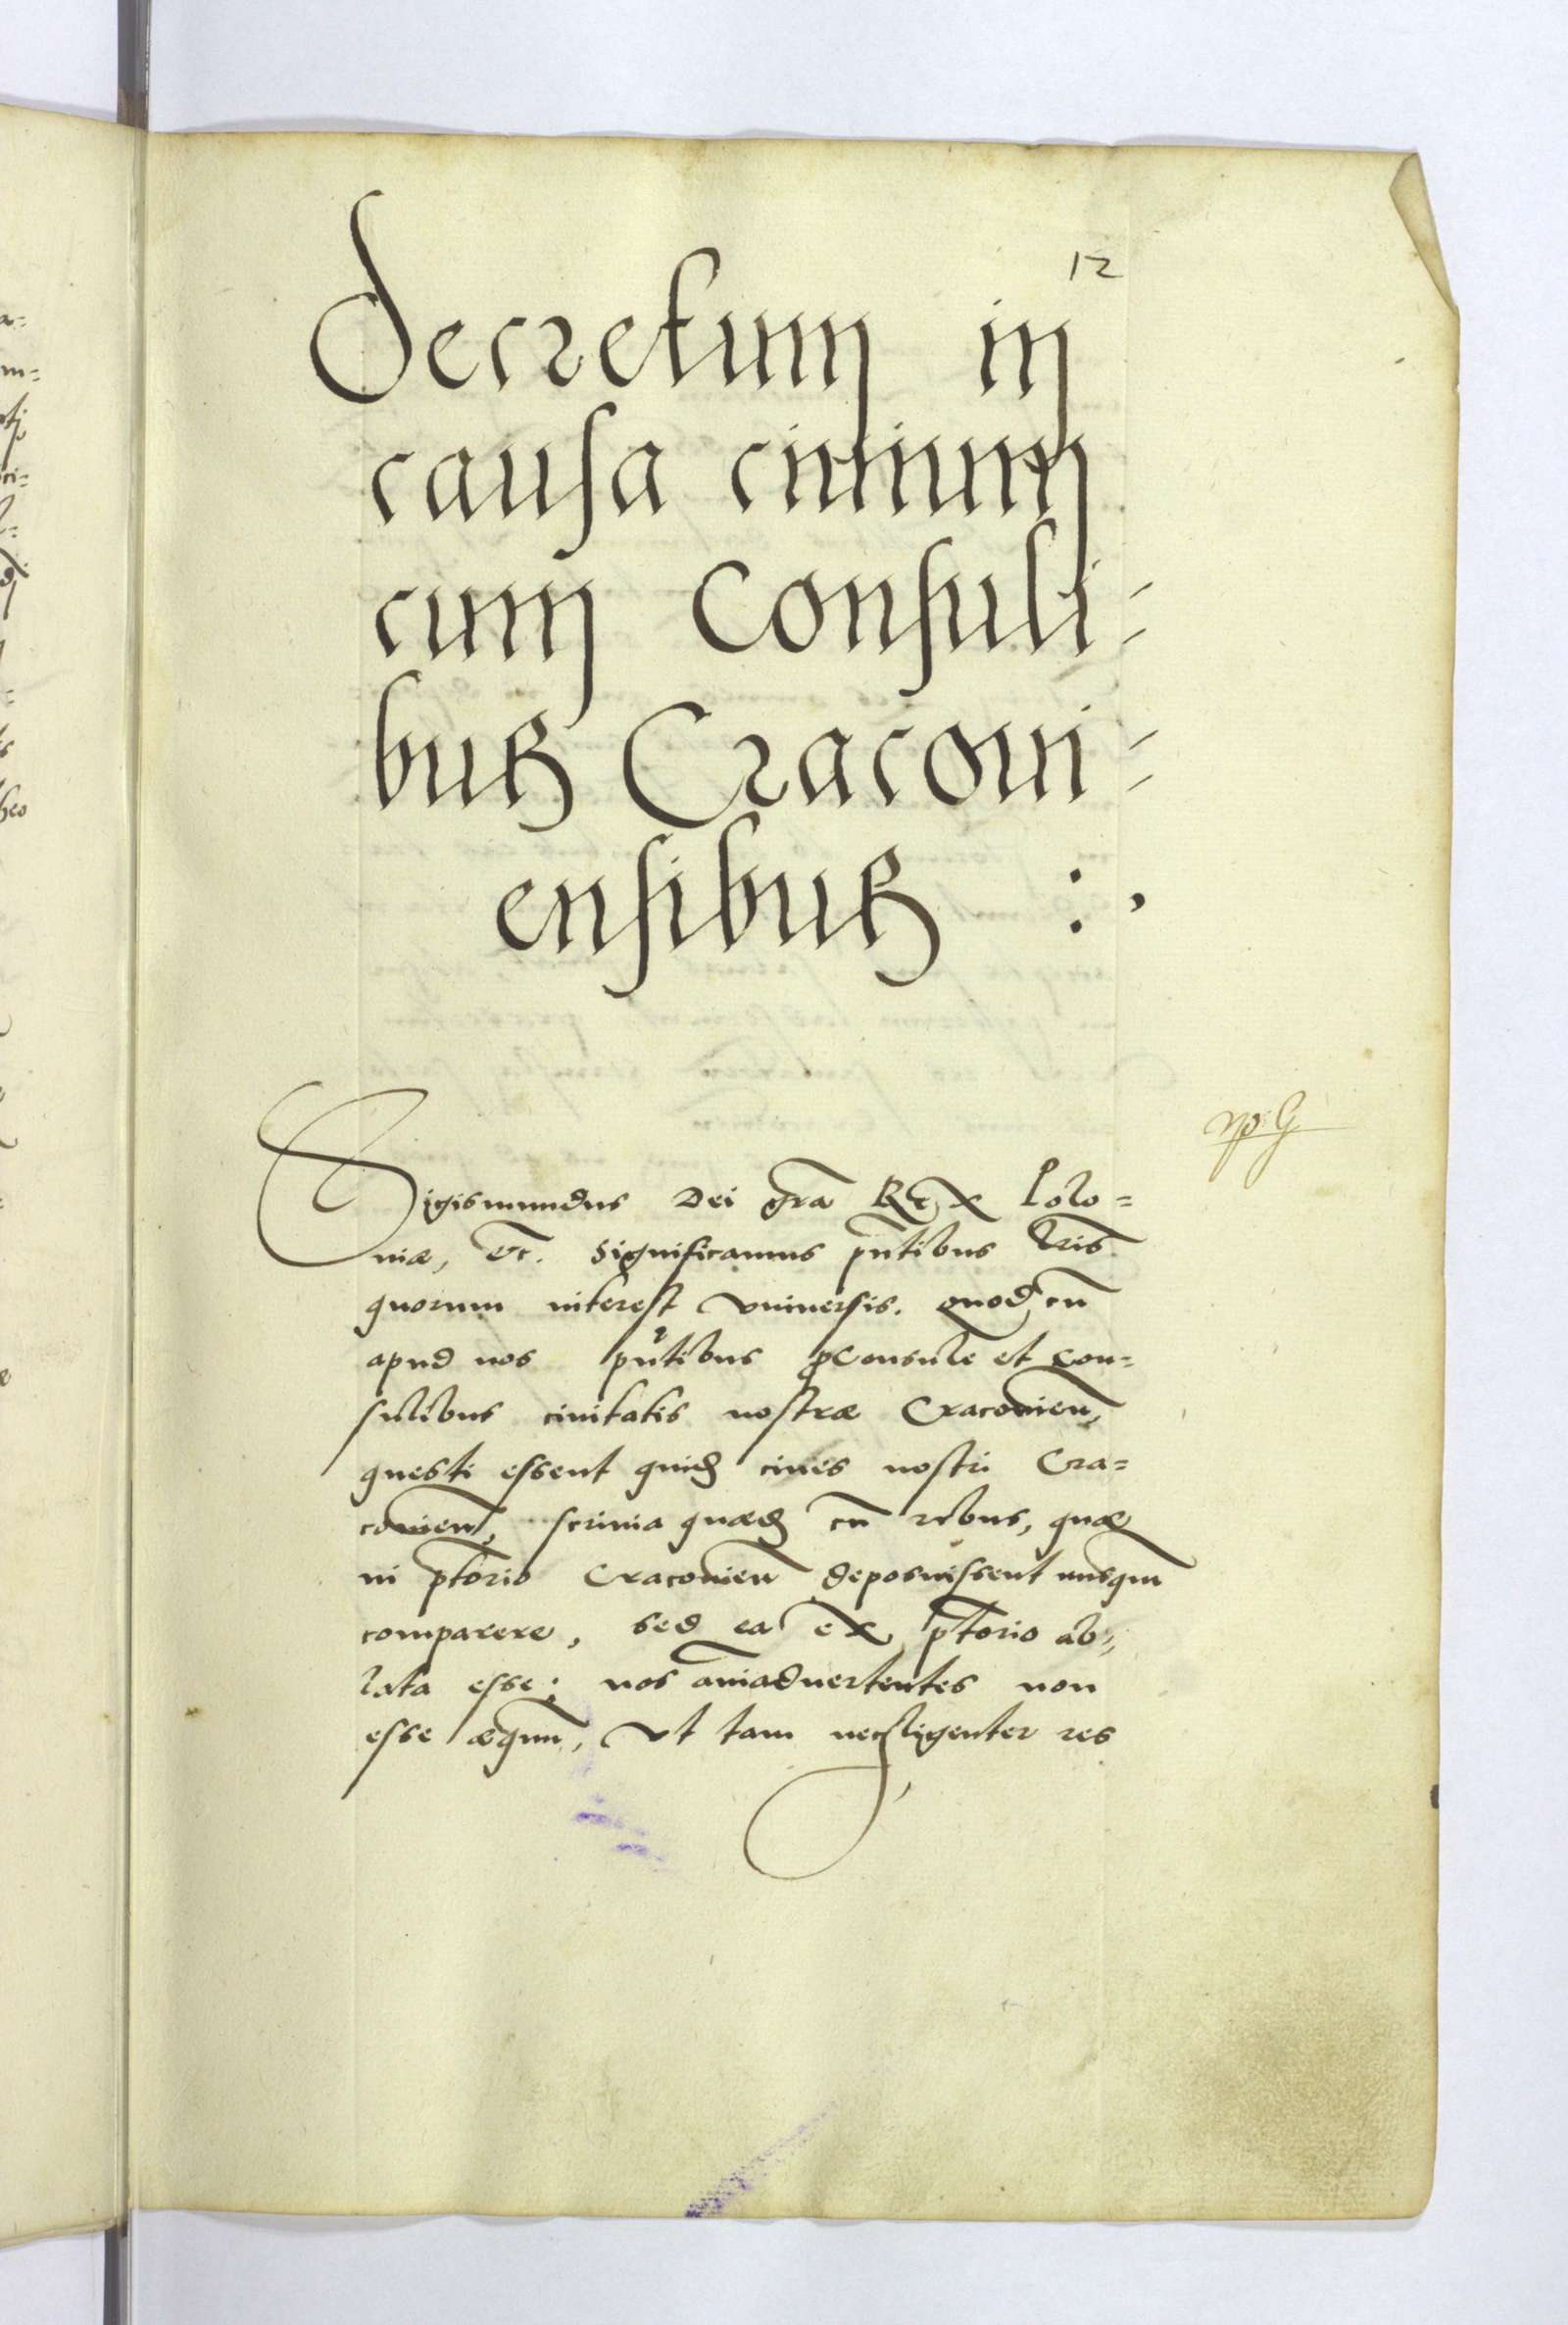 12
Decretum in
causa ciuium
cum Consuli=
bus Cracoui=
ensibus :,
Sigismundus Dei gra Rex Polo=
niæ, etc. Significamus pntibus lris
quorum interest vniuersis. Quod cu
apud nos pntibus pConsule et Con=
sulibus ciuitatis nostræ Cracouien,
questi essent quid ciues nostri Cra=
couien, scrinia quæd cu rebus, quæ
in ptorio Cracouien deposuissent nusqm
comparere, sed ea ex ptorio ab=
lata esse; nos aiaduertentes non
esse æquu, vt tam negligenter res